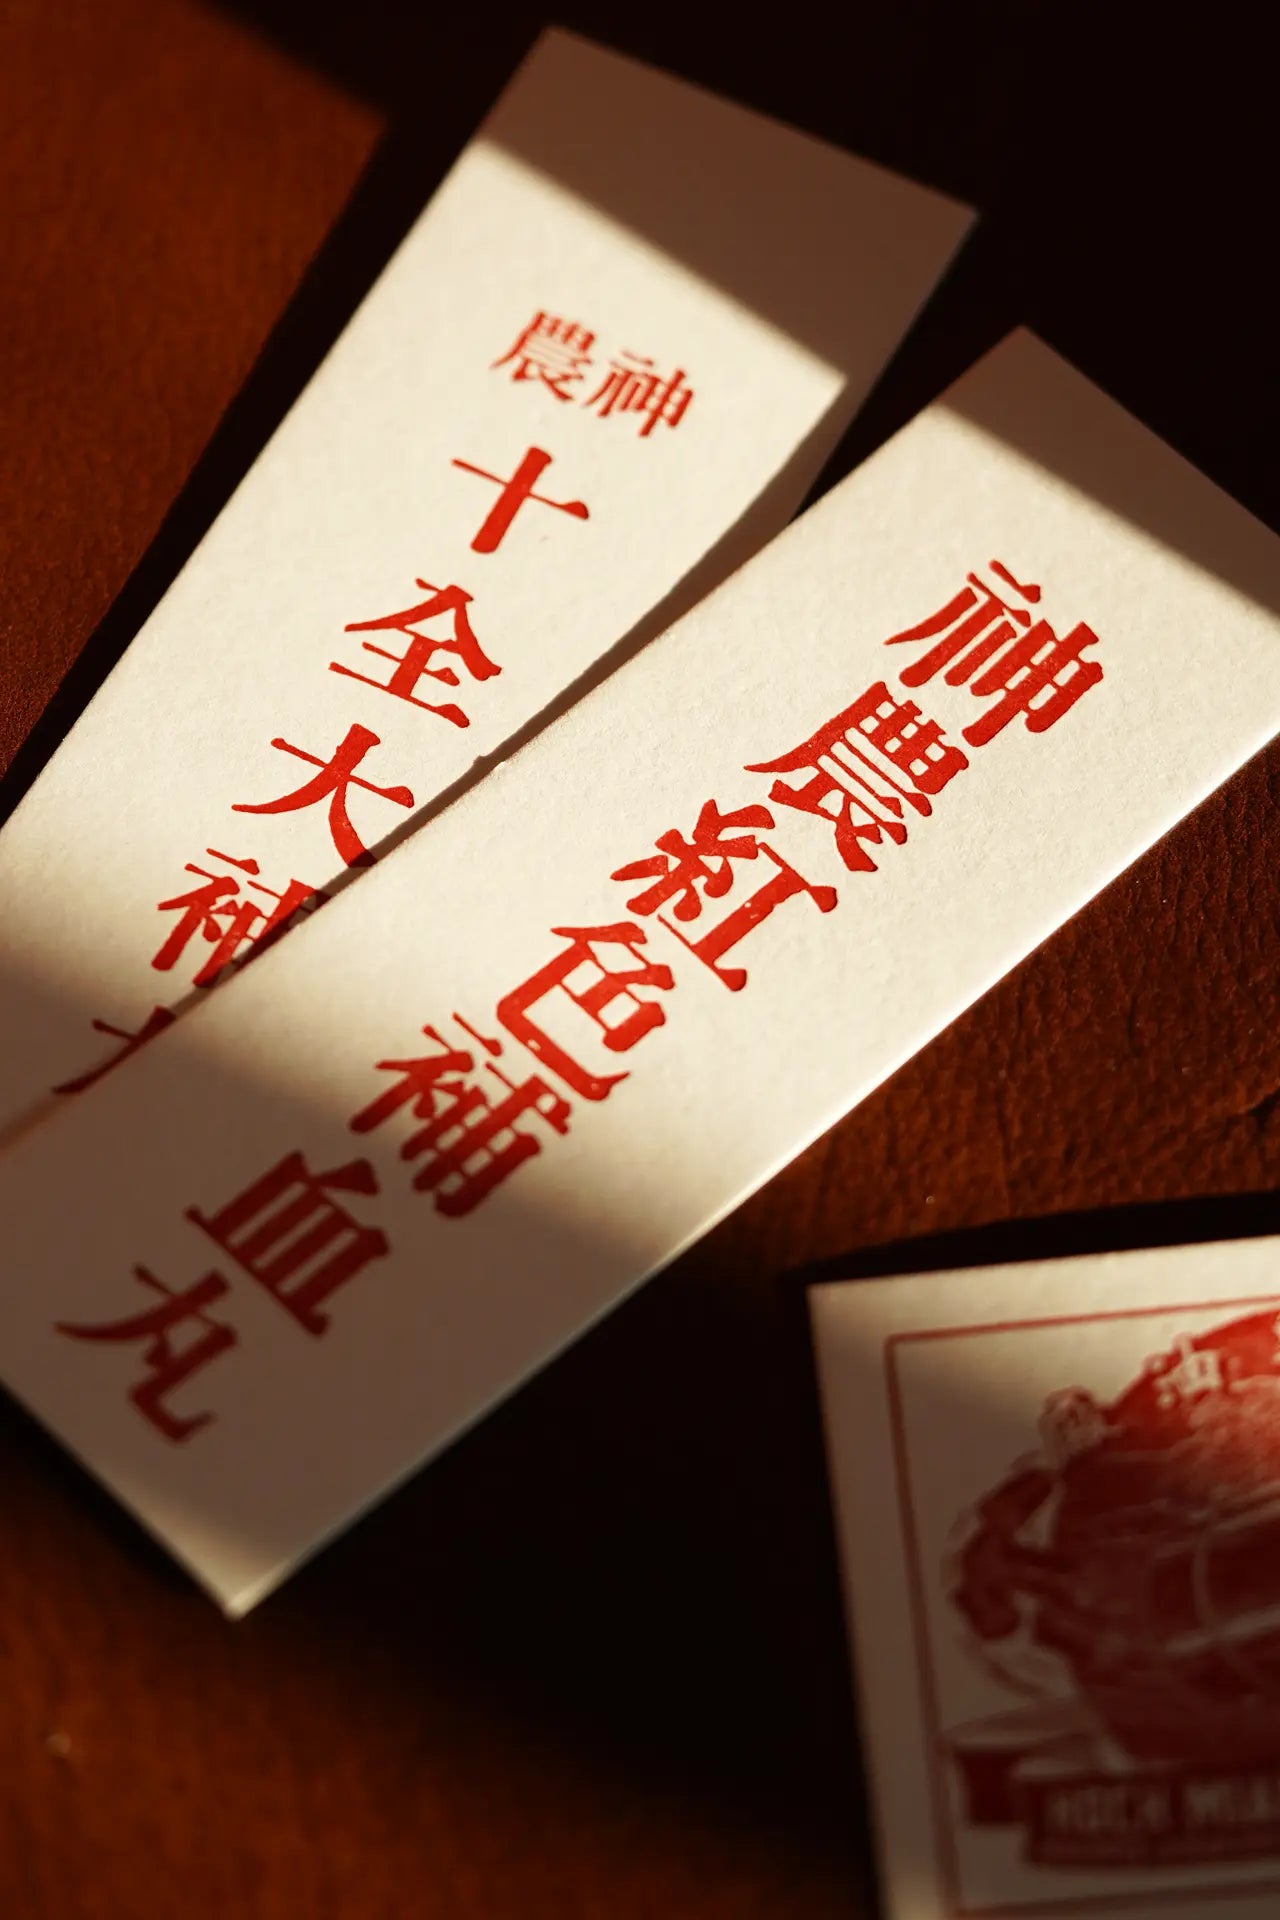 神農
十全大補
神農紅色補血丸
油
HOCK